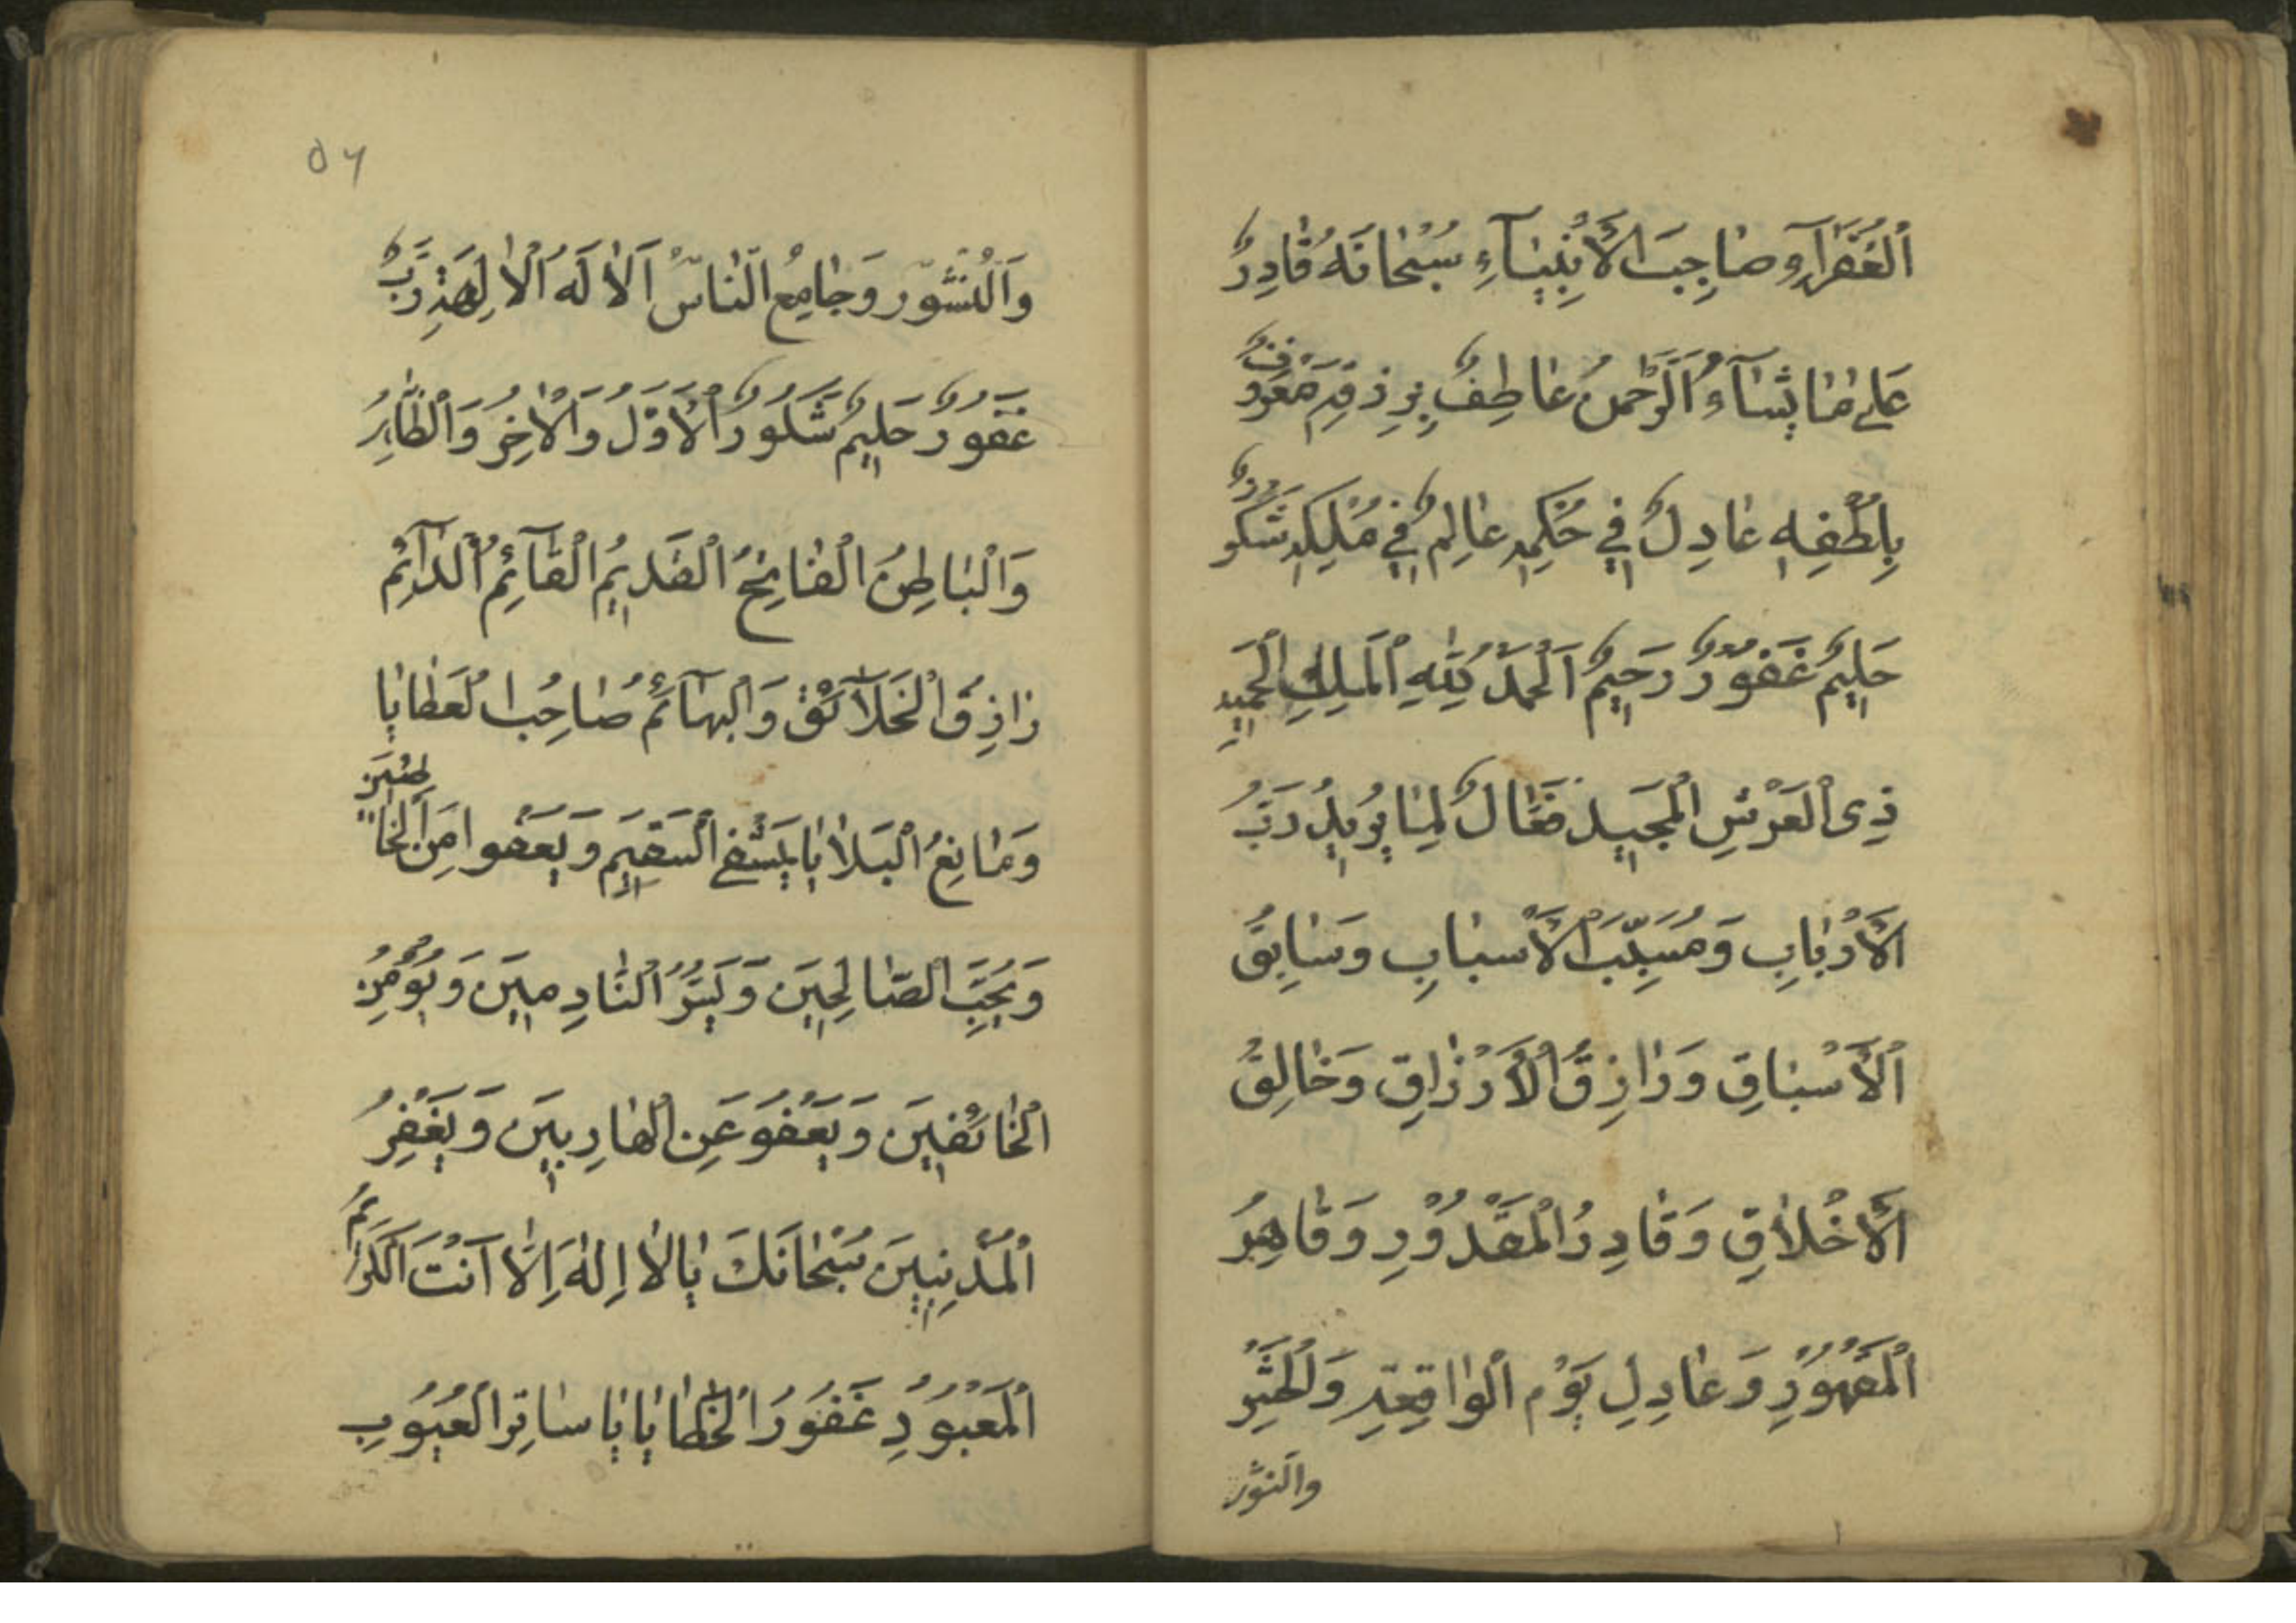 اَلْغُفَرَآءِ وَصَاحِبَ الْاَنْبِيَآءِ سُبْحَانَهُ قَادِرٌ
عَلٰى مَا يَشَآءُ اَلرَّحْمٰنُ عَاطِفٌ بِرِزْقِهِ مَعْرُوفٌ
بِلُطْفِهِ عَادِلٌ فِي حُكْمِهِ عَالِمٌ فِي مُلْكِهِ شَكُورٌ
حَلِيمٌ غَفُورٌ رَحِيمٌ اَلْحَمْدُ لِلّٰهِ الْمَلِكِ الْحَمِيدِ
ذِى الْعَرْشِ الْمَجِيدِ فَعَّالٌ لِمَا يُرِيدُ رَبُّ
الْاَرْبَابِ وَمُسَبِّبَ الْاَسْبَابِ وَسَابِقُ
الْاَسْبَاقِ وَرَازِقُ الْاَرْزَاقِ وَخَالِقُ
الْاَخْلَاقِ وَقَادِرُ الْمَقْدُورِ وَقَاهِرُ
الْمَقْهُورِ وَعَادِلِ يَوْمِ الْوَاقِعَةِ وَالْحَشْرِ
والنشور
٥٦
وَالنُّشُورِ وَجَامِعُ النَّاسِ اَلَا لَهُ
غَفُورٌ حَلِيمٌ شَكُورٌ اَلْاَوَّلُ وَالْاٰخِرُ وَالظَّاهِرُ
وَالْبَاطِنُ الْفَاتِحُ الْقَدِيمُ الْقَآئِمُ الدَّآئِمُ
رَازِقُ الْخَلَآئِقْ وَالْبَهَآئِمُ صَاحِبُ الْعَطَايَا
وَمَانِعُ الْبَلَايَا يَشْفِى السَّقِيمَ وَيَعْفُوا مِنَ الْخَاطِئِينَ
وَيُحِبُّ الصَّالِحِينَ وَيَسُرُّ النَّادِمِينَ وَيُؤْمِنُ
الْخَائِفِينَ وَيَعْفُوَ عَنِ الْهَارِبِينَ وَيَغْفِرُ
الْمُذْنِبِينَ سُبْحَانَكَ يَا لَا اِلٰهَ اِلَّا اَنْتَ الْكَرِيمُ
الْمَعْبُودِ غَفُورُ الْخَطَايَا يَا سَاتِرَ الْعُيُوبِ